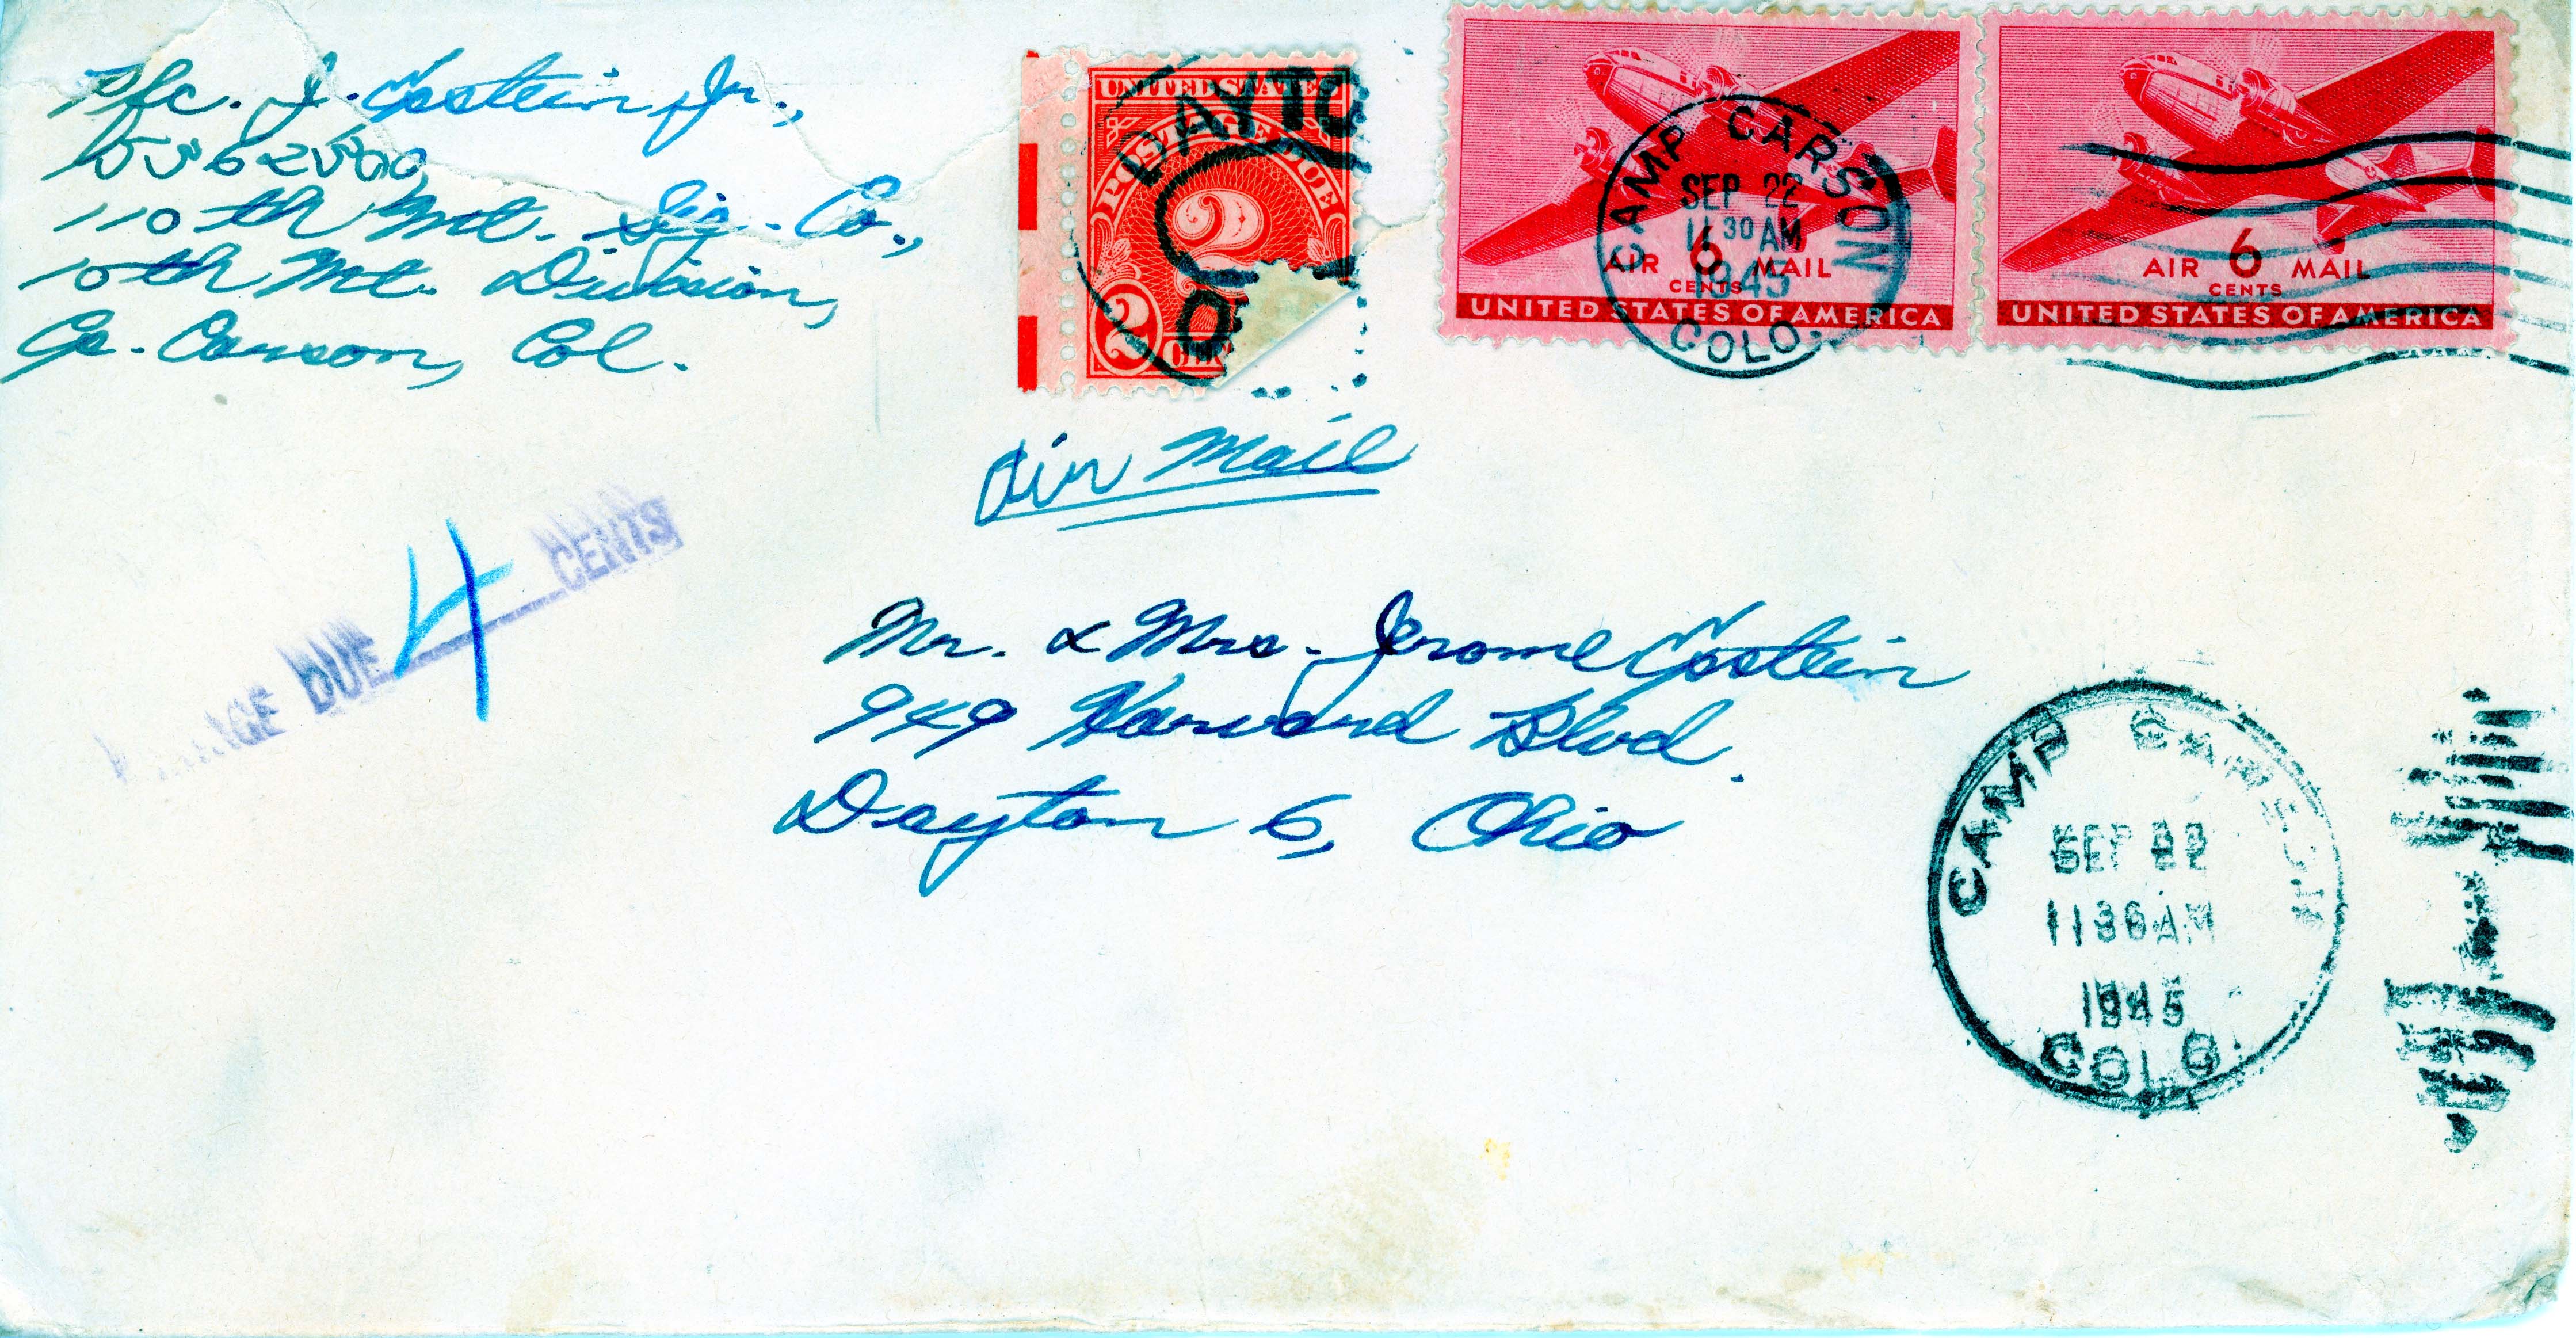 Pfc. J. Epstein Jr.,
110th Mt. Sig. Co.,
10th Mt. Division,
Cp. Carson, Col.
UNITED STATES
POSTAGE DUE
2
2
DAYTO
O
CAMP CARSON
SEP 22
11 30 AM
1945
COLO.
AIR 6 MAIL
CENTS
UNITED STATES OF AMERICA
AIR 6 MAIL
CENTS
UNITED STATES OF AMERICA
Air Mail
DUE 4 CENTS
Mr. & Mrs. Jerome Epstein
949 Harvard Blvd.
Dayton 6, Ohio
CAMP CARSON
SEP 22
1130AM
1945
COLO